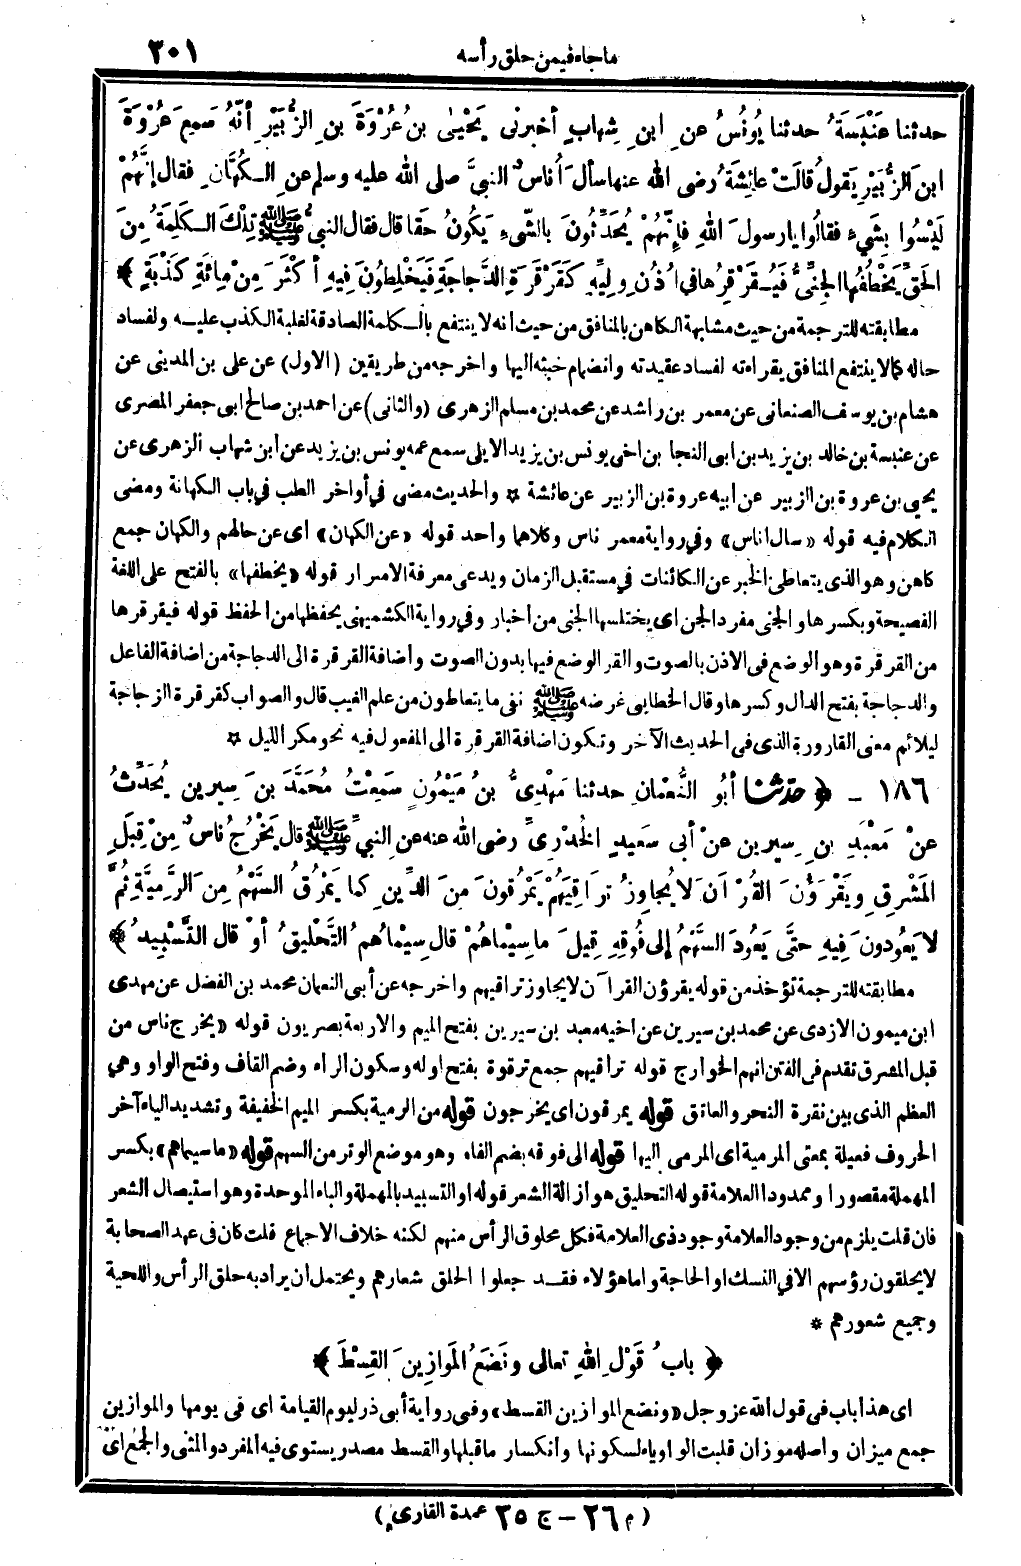 ما جاء فيمن حلق رأسه
٢٠١
حدثنا عَنْبَسَةُ حدثنا يُونُسُ عنِ ابنِ شِهابٍ أخبرنى يَحْيىٰ بنُ عُرْوَةَ بنِ الزُّبَيْرِ أنَّهُ سَمِعَ عُرْوَةَ
ابنَ الزُّبَيْرِ يَقولُ قالَتْ عائِشَةُ رضى الله عنها سألَ أُناسٌ النبىَّ صلى الله عليه وسلم عنِ الكُهَّانِ فقال إنَّهُمْ
لَيْسُوا بِشَىءٍ فقالُوا يارسولَ اللهِ فإنَّهُمْ يُحَدِّثُونَ بالشَّىءِ يَكونُ حَقًّا قال فقال النبىُّ ﷺ تِلْكَ الكَلِمَةُ مِنَ
الحَقِّ يَخْطَفُها الجِنِّىُّ فَيُقَرْقِرُها فى أُذُنِ ولِيِّهِ كَقَرْقَرَةِ الدَّجاجَةِ فَيَخْلِطُونَ فيهِ أكْثَرَ مِنْ مِائَةِ كَذْبَةٍ ﴾
مطابقته للترجمة من حيث مشابهة الكاهن بالمنافق من حيث انه لا ينتفع بالكلمة الصادقة لغلبة الكذب عليه ولفساد
حاله كما لا ينتفع المنافق بقراءته لفساد عقيدته وانضمام خبثه اليها واخرجه من طريقين (الاول) عن على بن المدينى عن
هشام بن يوسف الصنعانى عن معمر بن راشد عن محمد بن مسلم الزهرى (والثانى) عن احمد بن صالح ابى جعفر المصرى
عن عنبسة بن خالد بن يزيد بن ابى النجا بن اخى يونس بن يزيد الايلى سمع عمه يونس بن يزيد عن ابن شهاب الزهرى عن
يحيى بن عروة بن الزبير عن ابيه عروة بن الزبير عن عائشة * والحديث مضى فى أواخر الطب فى باب الكهانة ومضى
الكلام فيه قوله «سال اناس» وفى رواية معمر ناس وكلاهما واحد قوله «عن الكهان» اى عن حالهم والكهان جمع
كاهن وهو الذى يتعاطى الخبر عن الكائنات فى مستقبل الزمان ويدعى معرفة الاسرار قوله «يخطفها» بالفتح على اللغة
الفصيحة وبكسرها والجنى مفرد الجن اى يختلسها الجنى من أخبار وفى رواية الكشميهنى يحفظها من الحفظ قوله فيقرقرها
من القرقرة وهو الوضع فى الاذن بالصوت والقر الوضع فيها بدون الصوت واضافة القرقرة الى الدجاجة من اضافة الفاعل
والدجاجة بفتح الدال وكسرها وقال الخطابى غرضه ﷺ نفى ما يتعاطون من علم الغيب قال والصواب كقرقرة الزجاجة
ليلائم معنى القارورة الذى فى الحديث الآخر وتكون اضافة القرقرة الى المفعول فيه نحو مكر الليل *
١٨٦ - ﴿ حدثنا أبُو النُّعْمانِ حدثنا مَهْدِىُّ بنُ مَيْمُونٍ سَمِعْتُ مُحَمَّدَ بنَ سِيرِينَ يُحَدِّثُ
عنْ مَعْبَدِ بنِ سِيرِينَ عنْ أبى سَعِيدٍ الخُدْرِىِّ رضى الله عنه عنِ النبىِّ ﷺ قال يَخْرُجُ ناسٌ مِنْ قِبَلِ
المَشْرِقِ ويَقْرَؤُنَ القُرْآنَ لا يُجاوِزُ تَراقِيَهُمْ يَمْرُقونَ مِنَ الدِّينِ كما يَمْرُقُ السَّهْمُ مِنَ الرَّمِيَّةِ ثُمَّ
لا يَعُودونَ فِيهِ حتَّى يَعُودَ السَّهْمُ إلى فُوقِهِ قِيلَ ما سِيْماهُمْ قال سِيْماهُمُ التَّحْلِيقُ أوْ قال التَّسْبِيدُ ﴾
مطابقته للترجمة تؤخذ من قوله يقرؤن القرآن لا يجاوز تراقيهم واخرجه عن أبى النعمان محمد بن الفضل عن مهدى
ابن ميمون الازدى عن محمد بن سيرين عن اخيه معبد بن سيرين بفتح الميم والاربعة بصريون قوله «يخرج ناس من
قبل المشرق تقدم فى الفتن انهم الخوارج قوله تراقيهم جمع ترقوة بفتح اوله وسكون الراء وضم القاف وفتح الواو وهى
العظم الذى بين نقرة النحر والعاتق قوله يمرقون اى يخرجون قوله من الرمية بكسر الميم الخفيفة وتشديد الياء آخر
الحروف فعيلة بمعنى المرمية اى المرمى اليها قوله الى فوقه بضم الفاء وهو موضع الوتر من السهم قوله «ما سيماهم» بكسر
المهملة مقصورا وممدودا العلامة قوله التحليق هو ازالة الشعر قوله او التسبيد بالمهملة والباء الموحدة وهو استيصال الشعر
فان قلت يلزم من وجود العلامة وجود ذى العلامة فكل محلوق الرأس منهم لكنه خلاف الاجماع قلت كان فى عهد الصحابة
لا يحلقون رؤسهم الا فى النسك او الحاجة واما هؤلاء فقد جعلوا الحلق شعارهم ويحتمل ان يراد به حلق الرأس واللحية
وجميع شعورهم *
﴿ بابُ قَوْلِ اللهِ تعالى ونَضَعُ المَوازِينَ القِسْطَ ﴾
اى هذا باب فى قول الله عز وجل «ونضع الموازين القسط» وفى رواية أبى ذر ليوم القيامة اى فى يومها والموازين
جمع ميزان واصله موزان قلبت الواو ياء لسكونها وانكسار ما قبلها والقسط مصدر يستوى فيه المفرد والمثنى والجمع اى
(م ٢٦ - ج ٢٥ عمدة القارى)